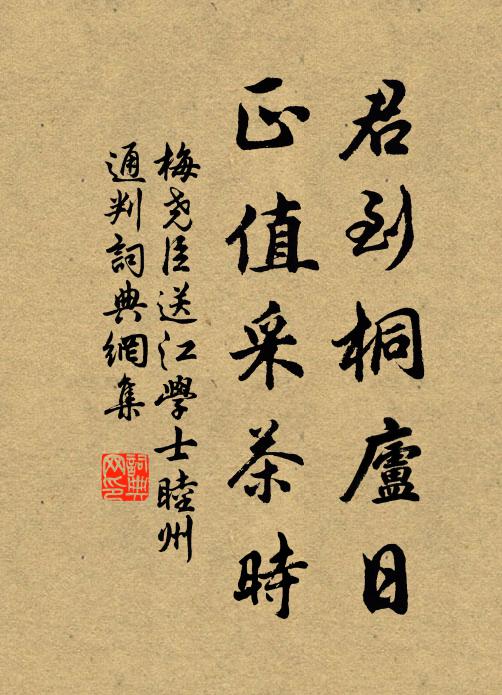 君到桐廬日
正值采茶時
梅尧臣送江學士睦州
通判詞典網集
詞典
网印